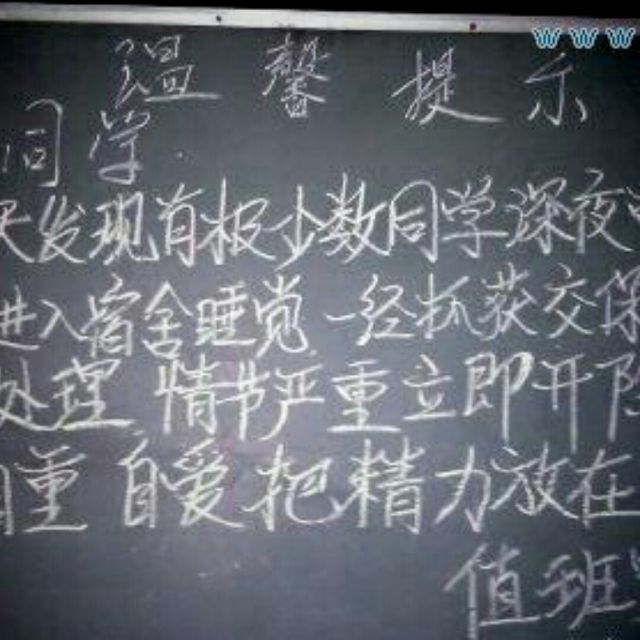 温馨提示
WWW
同学
天发现有极少数同学深夜
进入宿舍睡觉 一经抓获交保
处理 情节严重立即开除
自重 自爱 把精力放在
值班